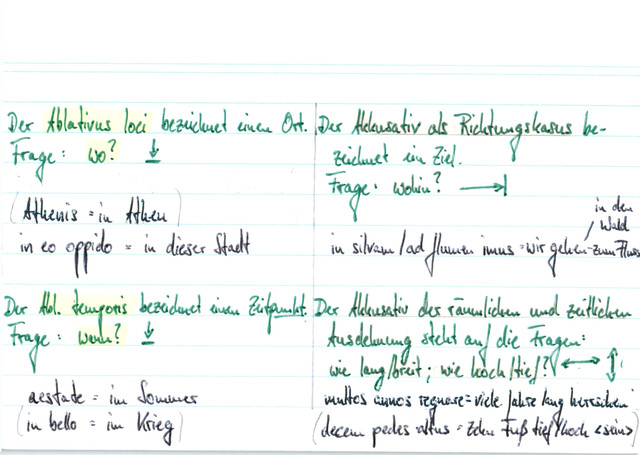 Der Ablativus loci bezeichnet einen Ort.
Frage: wo?
(Athenis = in Athen)
in eo oppido = in dieser Stadt
Der Akkusativ als Richtungskasus be-
zeichnet ein Ziel.
Frage: wohin?
in den
Wald
in silvam/ad flumen imus = wir gehen zum Fluss
Der Abl. temporis bezeichnet einen Zeitpunkt.
Frage: wann?
aestate = im Sommer
(in bello = im Krieg)
Der Akkusativ der räumlichen und zeitlichen
Ausdehnung steht auf die Fragen:
wie lang/breit; wie hoch/tief?
multos annos regnare = viele Jahre lang herrschen
(decem pedes altus = zehn Fuß tief/hoch <sein>)